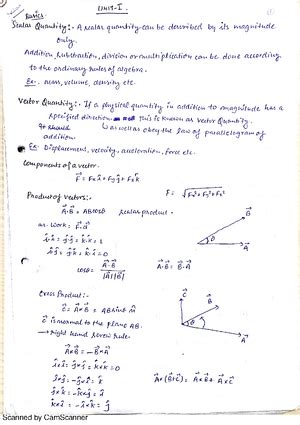 UNIT-I
Basics
Scalar Quantity:- A scalar quantity can be described by its magnitude
only.
Addition, subtraction, division or multiplication can be done according
to the ordinary rules of algebra.
Ex:- mass, volume, density etc.
Vector Quantity:- If a physical quantity in addition to magnitude has a
specified direction this is known as vector quantity.
It should as well as obey the law of parallelogram of
addition.
Ex- Displacement, velocity, acceleration, force etc.
Components of a vector.
F⃗ = Fxî + Fyĵ + Fzk̂ F = √Fx²+Fy²+Fz²
Product of vectors:-
A⃗·B⃗ = ABcosθ scalar product B⃗
as. Work = F⃗·d⃗
î·î = ĵ·ĵ = k̂·k̂ = 1 θ A⃗
î·ĵ = ĵ·k̂ = k̂·î = 0
cosθ = A⃗·B⃗ / |A⃗||B⃗| A⃗·B⃗ = B⃗·A⃗
Cross Product:-
C⃗ B⃗
C⃗ = A⃗×B⃗ = ABsinθ n̂
C⃗ is normal to the plane AB. θ
→ right hand screw rule A⃗
A⃗×B⃗ = -B⃗×A⃗
î×î = ĵ×ĵ = k̂×k̂ = 0
î×ĵ = -ĵ×î = k̂ A⃗×(B⃗+C⃗) = A⃗×B⃗ + A⃗×C⃗
ĵ×k̂ = -k̂×ĵ = î
k̂×î = -î×k̂ = ĵ
Scanned by CamScanner